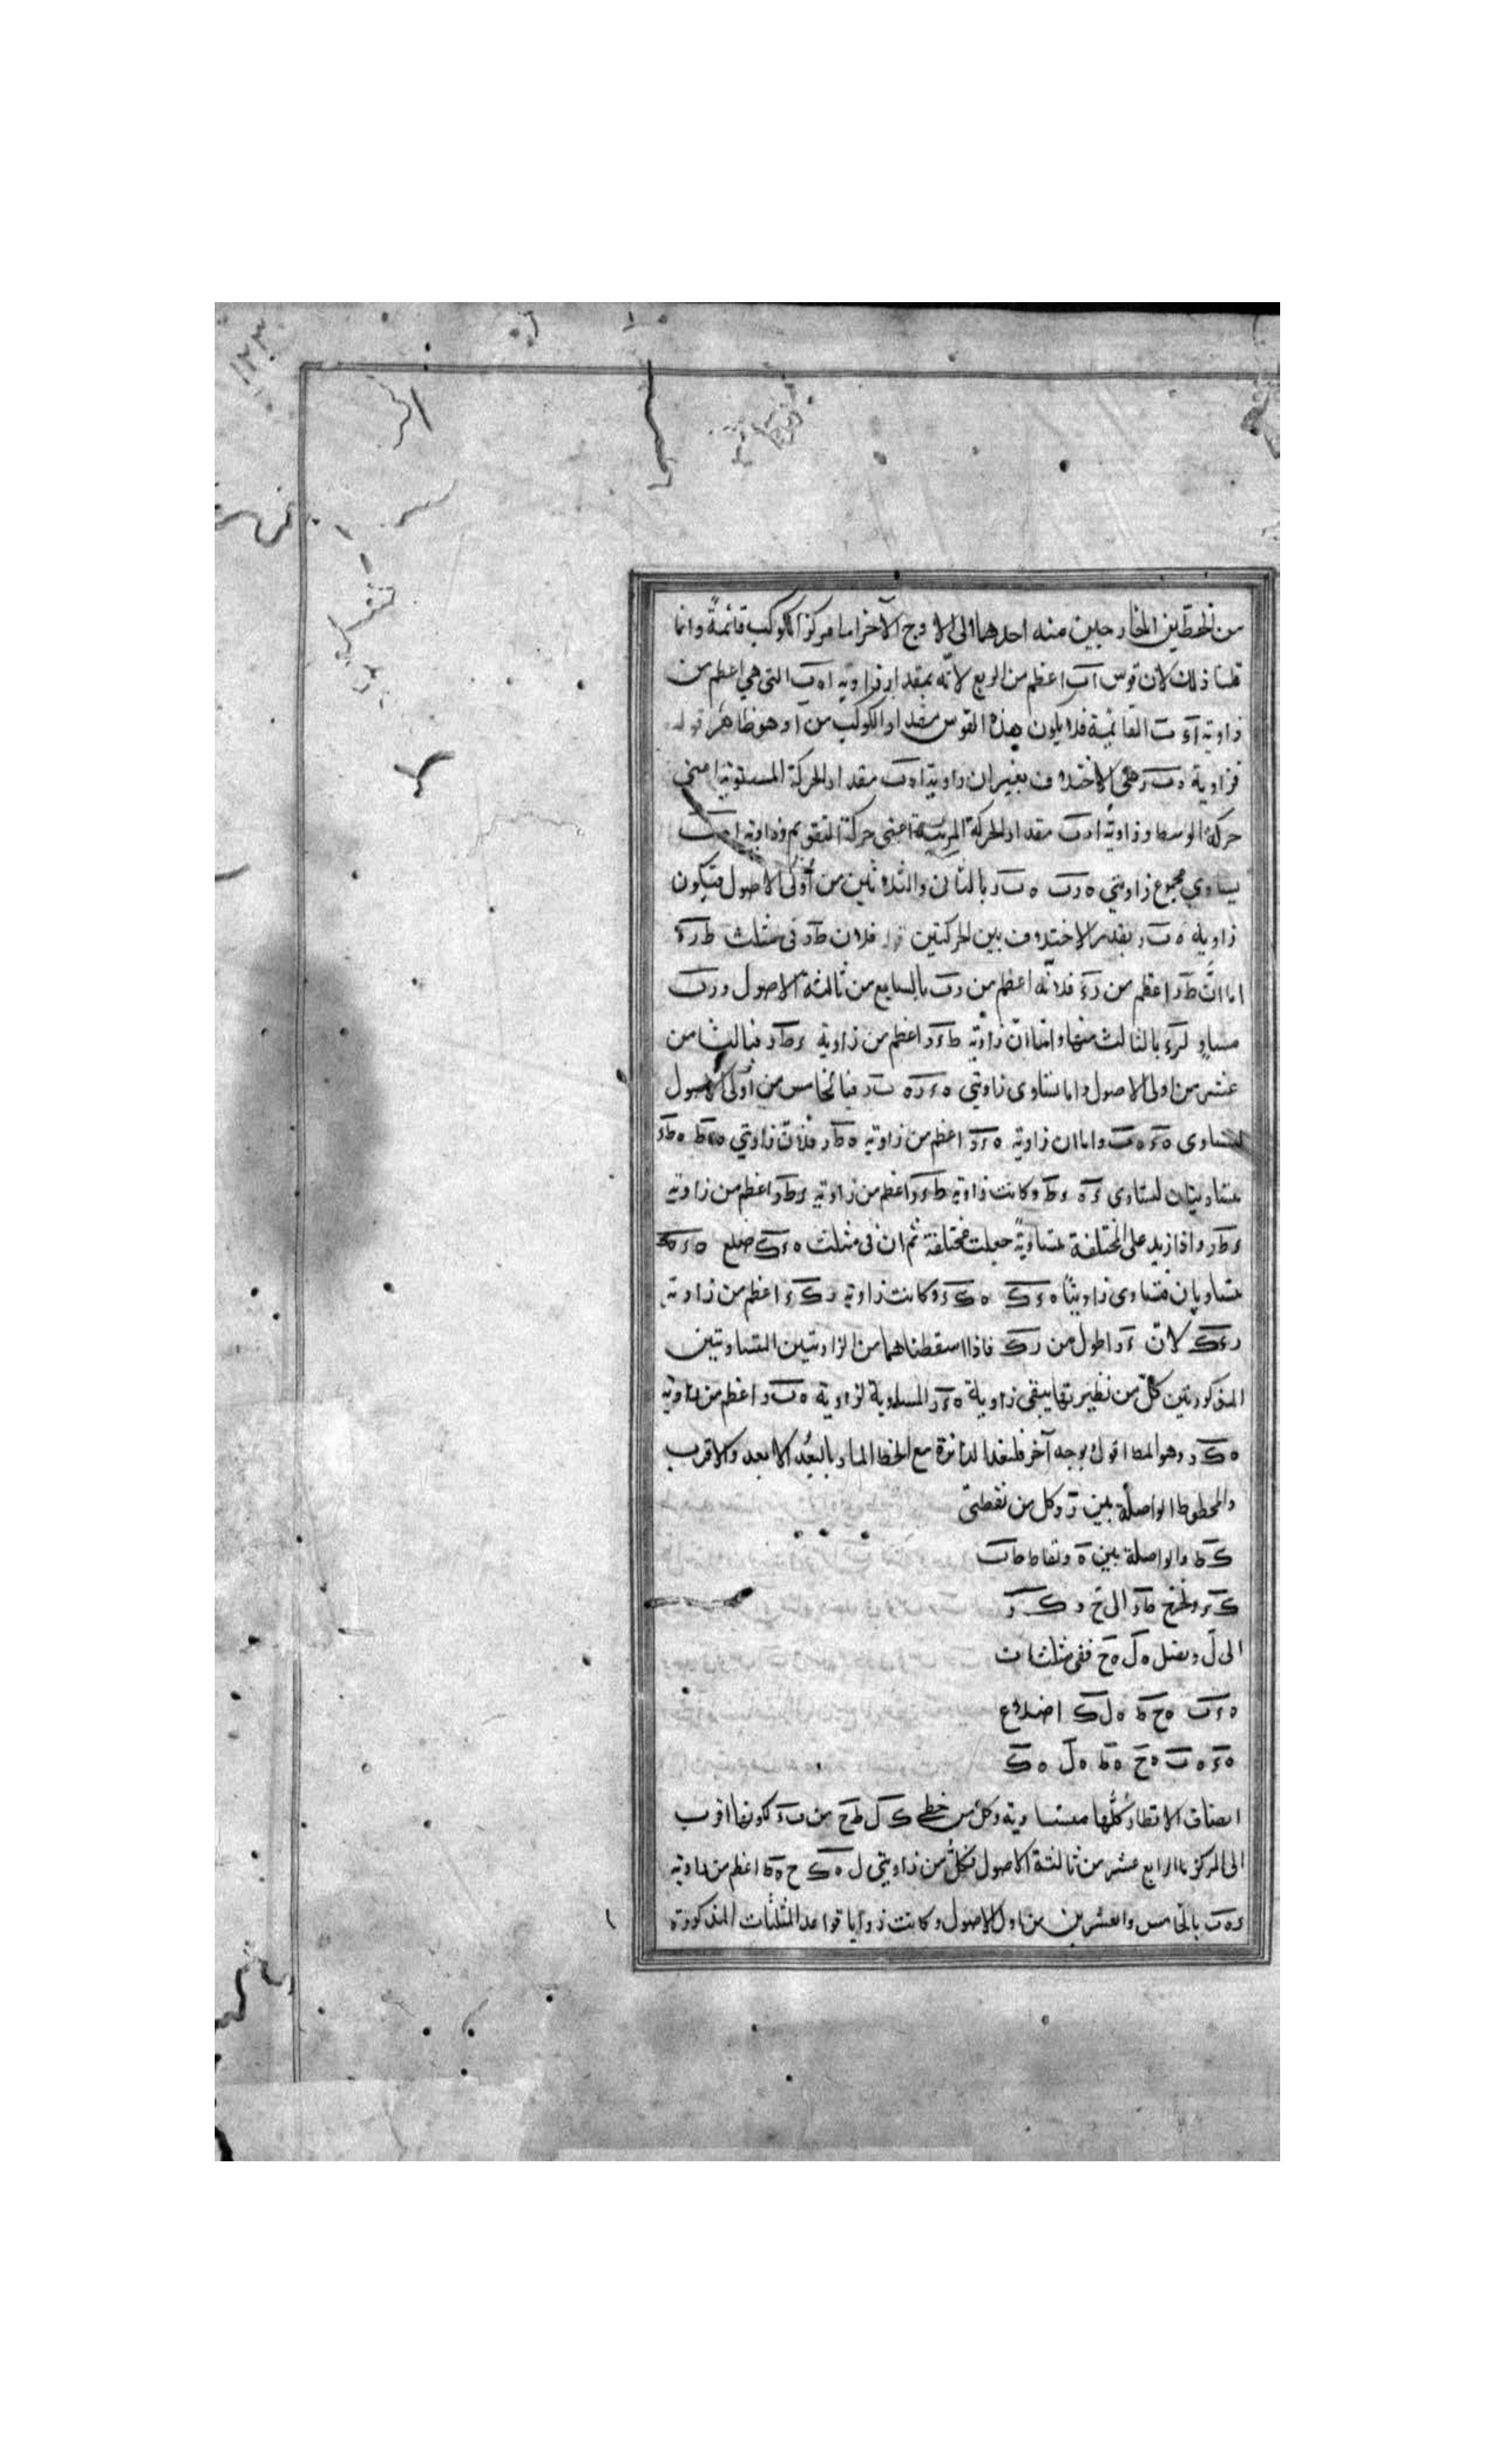 ١٢٣
من الخطين الخارجين منه احدهما الى الاوج الآخر اما مركز الكوكب قائمةً وانما
قلنا ذلك لان قوس اب اعظم من الربع لانه بمقدار زاوية ا ه ب التى هي اعظم من
زاوية ا ء ب القائمة فلا يكون هذه القوس مقدار الكوكب من ا وهو ظاهر قوله
فزاوية ه ب ر هى الاختلاف بغير ان زاوية ا ه ب مقدار الحركة المستوية اعنى
حركة الوسط وزاوية ا ر ب مقدار الحركة المرئية اعنى حركة التقويم وزاوية ا ه ب
يساوي مجموع زاويتي ه ر ب ه ب ر بالثانى والثلاثين من أولى الاصول فيكون
زاوية ه ب ر بقدر الاختلاف بين الحركتين فلان ط ر فى مثلث ط ر ء
اما انّ ط ر اعظم من ر ء فلانه اعظم من ر ب بالسابع من ثالثة الاصول و ر ب
مساوٍ لـ ر ء بالثالث منها واما انّ زاوية ط ء ر اعظم من زاوية ء ط ر فبالثامن
عشر من اولى الاصول واما تساوى زاويتي ه ء ر ه ب ر فبالخامس من أولى الاصول
لتساوى ه ء ه ب واما ان زاوية ه ء ر اعظم من زاوية ه ط ر فلانّ زاويتي ه ء ط ه ط ء
متساويتان لتساوى ء ه ه ط وكانت زاوية ط ء ر اعظم من زاوية ء ط ر اعظم من زاوية
ء ط ر واذا زيد على المختلفة متساويةً جعلت مختلفة ثم ان فى مثلث ه ء ك ضلع ه ء ه ك
متساويان فتساوى زاويتا ه ء ك ه ك ء وكانت زاوية ر ك ء اعظم من زاوية
ر ء ك لانّ ء ر اطول من ر ك فاذا اسقطناهما من الزاويتين المتساويتين
المذكورتين كلّ من نظيرتها يبقى زاوية ه ء ر المساوية لزاوية ه ب ر اعظم من زاوية
ه ك ر وهو المط اقول وبوجه آخر فلنعد الدائرة مع الخط المار بالبُعد الابعد والاقرب
والخطوط الواصلة بين ر وكل من نقطتى
ك ط والواصلة بين ه ونقاط ط ب
ك ء ولنخرج ط ر الى ح و ك ر
الى ل ونصل ه ل ه ح ففى مثلثات
ه ء ب ه ح ط ه ل ك اضلاع
ه ء ه ب ه ح ه ط ه ل ه ك
انصاف الاقطار كلُّها متساوية وكل من خطي ك ل ط ح من ب ء لكونها اقرب
الى المركز بالرابع عشر من ثالثة الاصول فكلّ من زاويتي ل ه ك ح ه ط اعظم من زاوية
ء ه ب بالخامس والعشرين من اولى الاصول وكانت زوايا قواعد المثلثات المذكورة